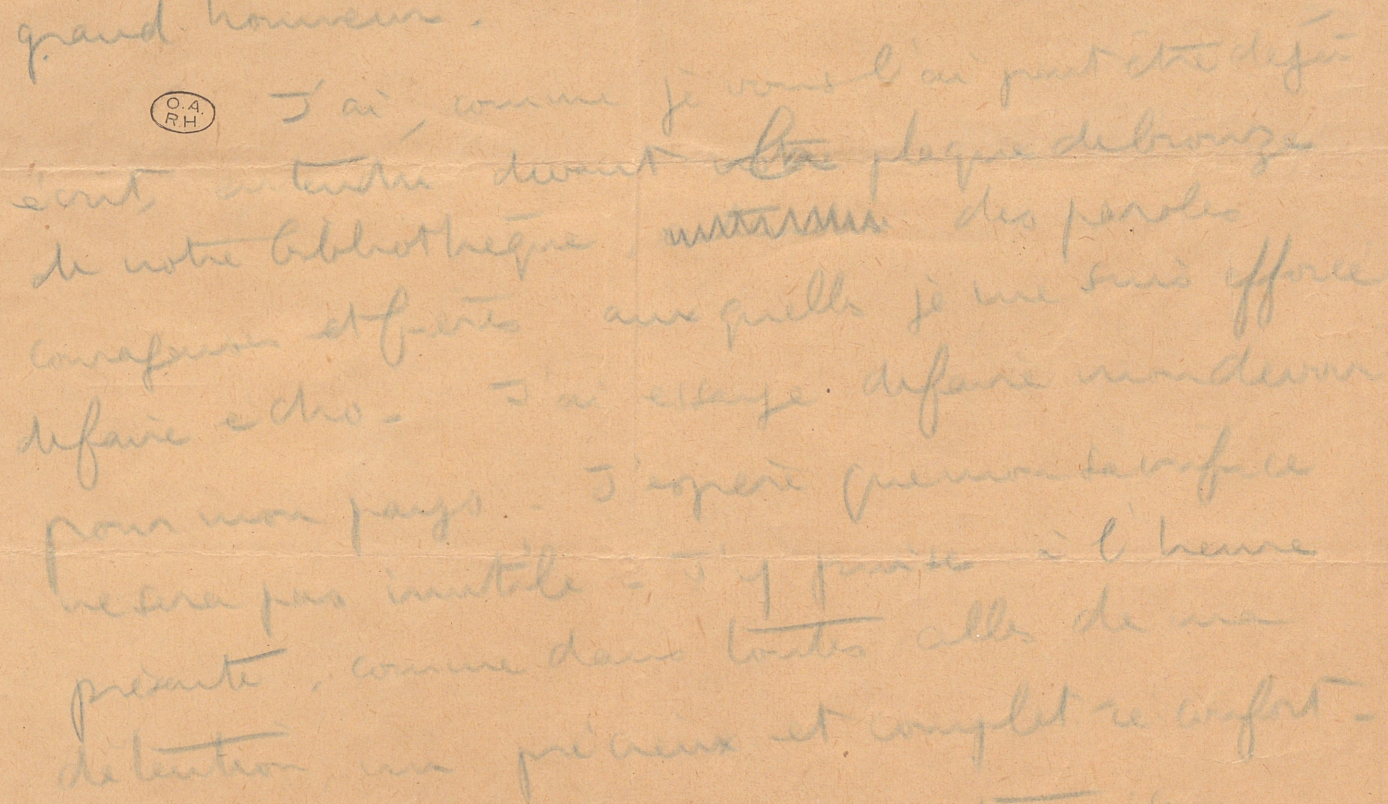 grand honneur.
J'ai, comme je vous l'ai peut être dejà
O.A.
RH
écrit, entendu devant la plaque de bronze
de notre bibliothèque, des paroles
courageuses et fières auxquelles je me suis efforcé
de faire echo - J'ai essayé de faire mon devoir
pour mon pays - J'espère que mon sacrifice
ne sera pas inutile - J'y puise à l'heure
présente, comme dans toutes celles de ma
détention un précieux et complet réconfort -